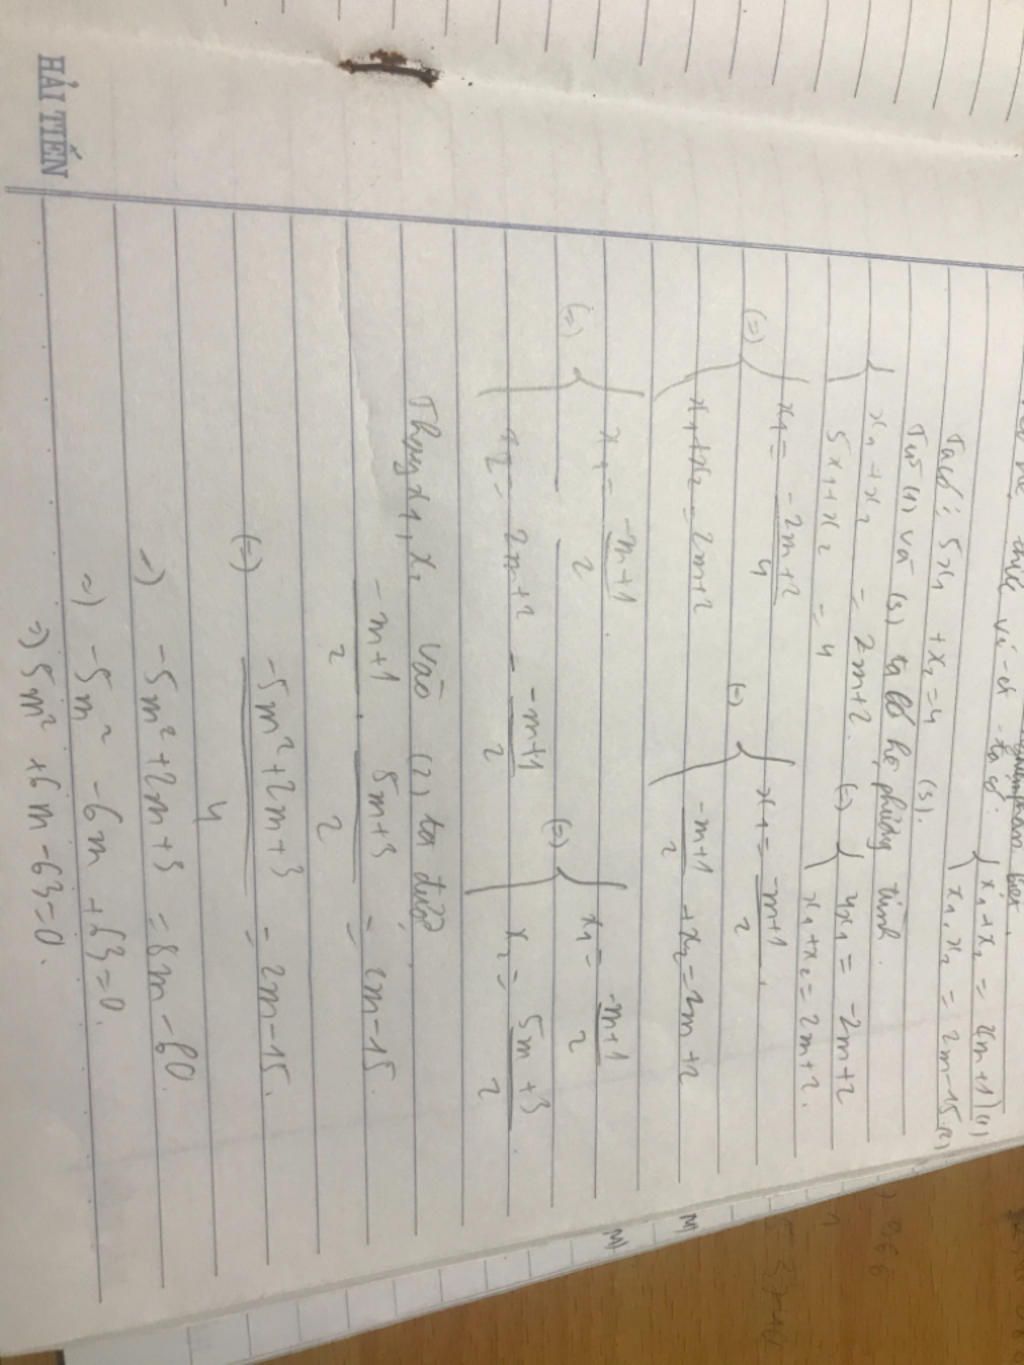 thức vi-et ta có: { x₁ + x₂ = 2(m+1) (1)
x₁ . x₂ = 2m - 15 (2)
Ta có: 5x₁ + x₂ = 4 (3).
Từ (1) và (3) ta có hệ phương trình.
{ x₁ + x₂ = 2m+2. (=) { 4x₁ = -2m+2
5x₁ + x₂ = 4 x₁ + x₂ = 2m+2.
(=) { x₁ = -2m+2 / 4 (=) { x₁ = -m+1 / 2.
x₁ + x₂ = 2m+2 -m+1 / 2 + x₂ = 2m+2
(=) { x₁ = -m+1 / 2. (=) { x₁ = -m+1 / 2
x₂ = 2m+2 - -m+1 / 2 x₂ = 5m+3 / 2
Thay x₁, x₂ vào (2) ta được
-m+1 / 2 . 5m+3 / 2 = 2m-15.
(=) -5m²+2m+3 / 4 = 2m-15.
=) -5m²+2m+3 = 8m-60
=) -5m² - 6m + 63 = 0.
=) 5m² + 6m - 63 = 0.
HẢI TIẾN